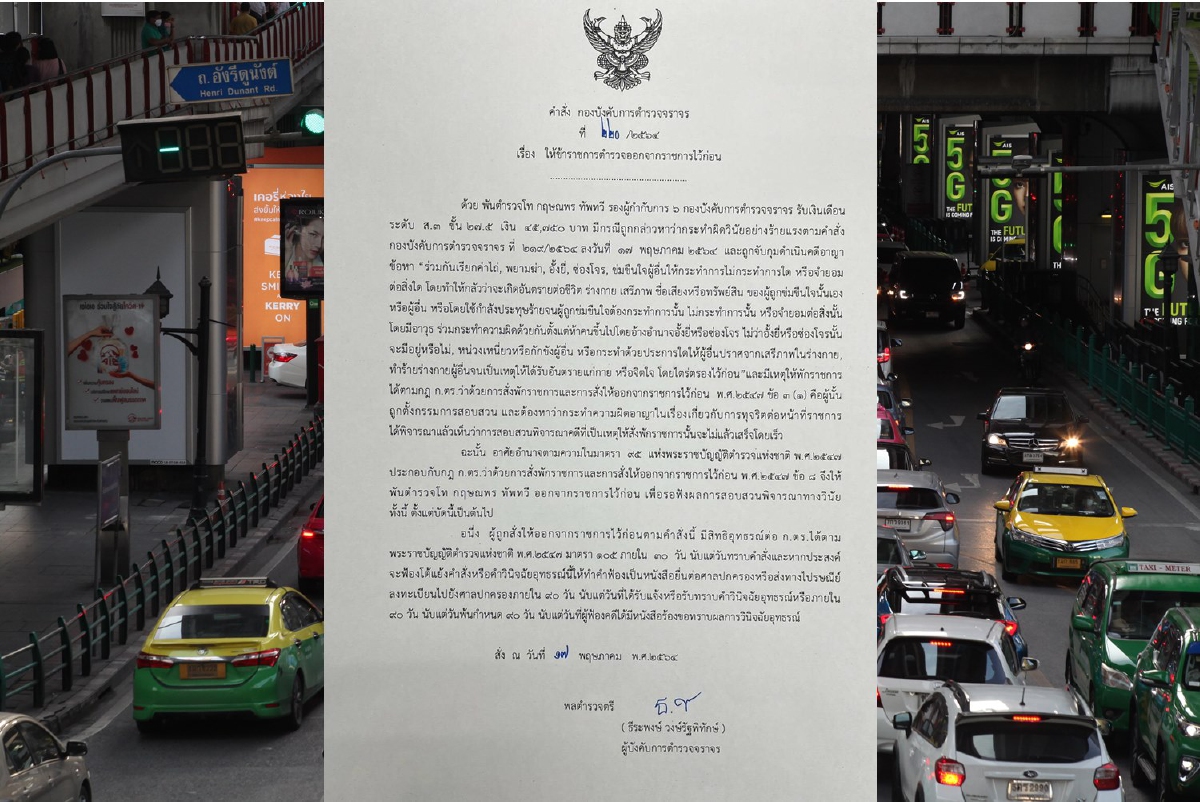 ถ.อังรีดูนังต์
Henri Dunant Rd.
คำสั่ง กองบังคับการตำรวจจราจร
ที่ ๒๒๐ /๒๕๖๔
เรื่อง ให้ข้าราชการตำรวจออกจากราชการไว้ก่อน
ด้วย พันตำรวจโท กฤษณพร ทัพทวี รองผู้กำกับการ ๖ กองบังคับการตำรวจจราจร รับเงินเดือน
ระดับ ส.๓ ชั้น ๒๗.๕ เงิน ๔๕,๗๕๐ บาท มีกรณีถูกกล่าวหาว่ากระทำผิดวินัยอย่างร้ายแรงตามคำสั่ง
กองบังคับการตำรวจจราจร ที่ ๒๑๙/๒๕๖๔ ลงวันที่ ๑๗ พฤษภาคม ๒๕๖๔ และถูกจับกุมดำเนินคดีอาญา
ข้อหา "ร่วมกันเรียกค่าไถ่, พยามฆ่า, อั้งยี่, ซ่องโจร, ข่มขืนใจผู้อื่นให้กระทำการไม่กระทำการใด หรือจำยอม
ต่อสิ่งใด โดยทำให้กลัวว่าจะเกิดอันตรายต่อชีวิต ร่างกาย เสรีภาพ ชื่อเสียงหรือทรัพย์สิน ของผู้ถูกข่มขืนใจนั้นเอง
หรือผู้อื่น หรือโดยใช้กำลังประทุษร้ายจนผู้ถูกข่มขืนใจต้องกระทำการนั้น ไม่กระทำการนั้น หรือจำยอมต่อสิ่งนั้น
โดยมีอาวุธ ร่วมกระทำความผิดด้วยกันตั้งแต่ห้าคนขึ้นไปโดยอ้างอำนาจอั้งยี่หรือซ่องโจร ไม่ว่าอั้งยี่หรือซ่องโจรนั้น
จะมีอยู่หรือไม่, หน่วงเหนี่ยวหรือกักขังผู้อื่น หรือกระทำด้วยประการใดให้ผู้อื่นปราศจากเสรีภาพในร่างกาย,
ทำร้ายร่างกายผู้อื่นจนเป็นเหตุให้ได้รับอันตรายแก่กาย หรือจิตใจ โดยไตร่ตรองไว้ก่อน"และมีเหตุให้พักราชการ
ได้ตามกฎ ก.ตร.ว่าด้วยการสั่งพักราชการและการสั่งให้ออกจากราชการไว้ก่อน พ.ศ.๒๕๔๗ ข้อ ๓ (๑) คือผู้นั้น
ถูกตั้งกรรมการสอบสวน และต้องหาว่ากระทำความผิดอาญาในเรื่องเกี่ยวกับการทุจริตต่อหน้าที่ราชการ
ได้พิจารณาแล้วเห็นว่าการสอบสวนพิจารณาคดีที่เป็นเหตุให้สั่งพักราชการนั้นจะไม่แล้วเสร็จโดยเร็ว
ฉะนั้น อาศัยอำนาจตามความในมาตรา ๙๕ แห่งพระราชบัญญัติตำรวจแห่งชาติ พ.ศ.๒๕๔๗
ประกอบกับกฎ ก.ตร.ว่าด้วยการสั่งพักราชการและการสั่งให้ออกจากราชการไว้ก่อน พ.ศ.๒๕๔๗ ข้อ ๘ จึงให้
พันตำรวจโท กฤษณพร ทัพทวี ออกจากราชการไว้ก่อน เพื่อรอฟังผลการสอบสวนพิจารณาทางวินัย
ทั้งนี้ ตั้งแต่บัดนี้เป็นต้นไป
อนึ่ง ผู้ถูกสั่งให้ออกจากราชการไว้ก่อนตามคำสั่งนี้ มีสิทธิอุทธรณ์ต่อ ก.ตร.ได้ตาม
พระราชบัญญัติตำรวจแห่งชาติ พ.ศ.๒๕๔๗ มาตรา ๑๐๕ ภายใน ๓๐ วัน นับแต่วันทราบคำสั่งและหากประสงค์
จะฟ้องโต้แย้งคำสั่งหรือคำวินิจฉัยอุทธรณ์นี้ให้ทำคำฟ้องเป็นหนังสือยื่นต่อศาลปกครองหรือส่งทางไปรษณีย์
ลงทะเบียนไปยังศาลปกครองภายใน ๙๐ วัน นับแต่วันที่ได้รับแจ้งหรือรับทราบคำวินิจฉัยอุทธรณ์หรือภายใน
๙๐ วัน นับแต่วันพ้นกำหนด ๙๐ วัน นับแต่วันที่ผู้ฟ้องคดีได้มีหนังสือร้องขอทราบผลการวินิจฉัยอุทธรณ์
สั่ง ณ วันที่ ๑๗ พฤษภาคม พ.ศ.๒๕๖๔
พลตำรวจตรี
( ธีระพงษ์ วงษ์รัฐพิทักษ์ )
ผู้บังคับการตำรวจจราจร
KERRY
ON
AIS
5G
THE FUTURE
IS COMING
AIS
5G
TAXI - METER